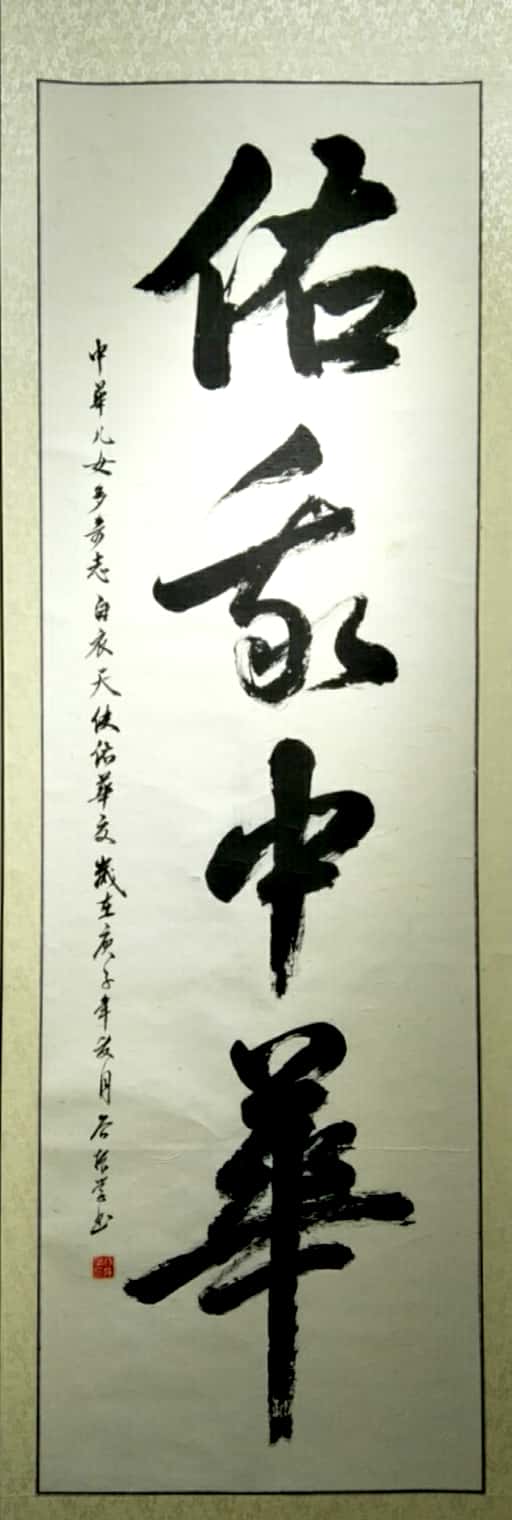 佑我中華
中華儿女多奇志白衣天使佑華夏歲在庚子年月書